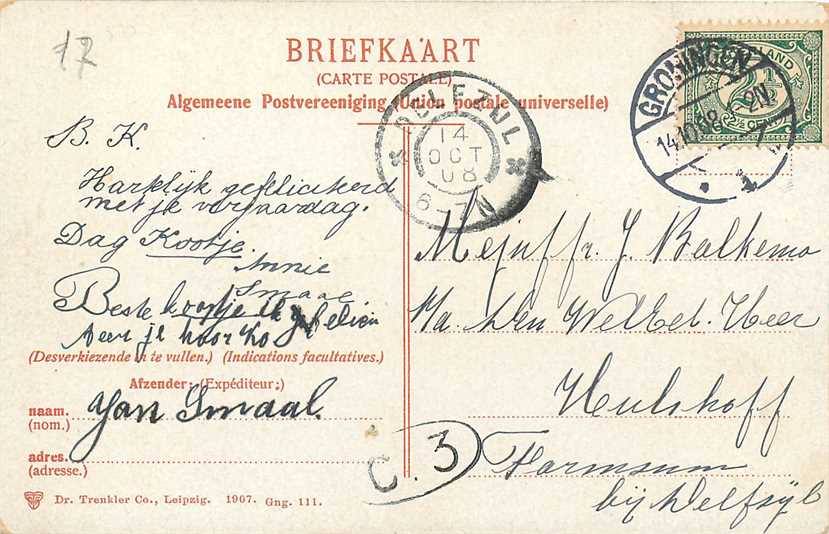 17
BRIEFKAART
(CARTE POSTALE)
Algemeene Postvereeniging (Union postale universelle)
DELFZIJL
14
OCT
08
6-7N
GRONINGEN
14.10.08
2N
NEDERLAND
2½
CENT
B. K.
Harklijk gefeliciteerd
met je verjaardag.
Dag Kootje.
Annie
Smaal
Beste Kootje ik
je hoor Ko
(Desverkiezende in te vullen.) (Indications facultatives.)
Afzender: (Expéditeur;)
naam. Jan Smaal.
(nom.)
adres.
(adresse.)
Dr. Trenkler Co., Leipzig. 1907. Gng. 111.
C. 3
Mejuffr. J. Balkema
p/a. den WelEd. Heer
Hulshoff
Farmsum
bij Delfzijl